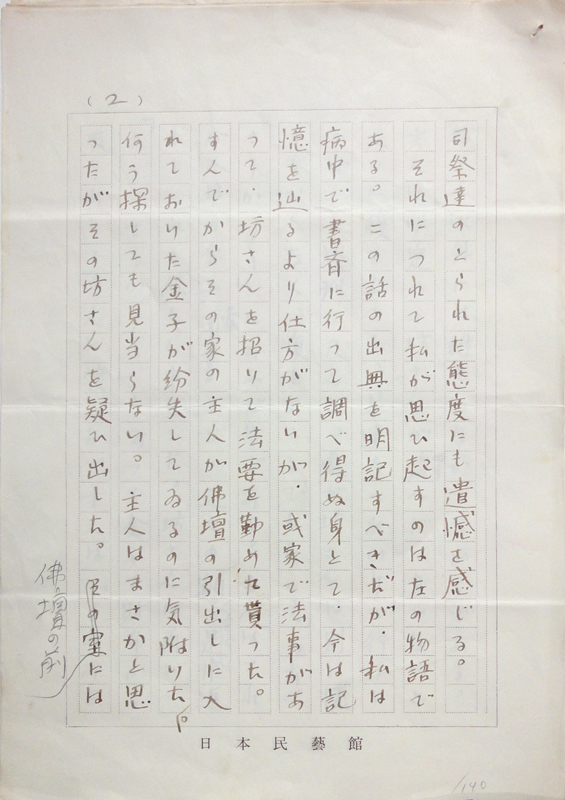 (2)
司祭達のとられた態度にも遺憾を感じる。
それにつれて私が思ひ起すのは左の物語で
ある。この話の出典を明記すべきだが、私は
病中で書斉に行って調べ得ぬ身とて、今は記
憶を辿るより仕方がないが、或家で法事があ
って、坊さんを招いて法要を勤めて貰った。
すんでからその家の主人が佛壇の引出しに入
れておいた金子が紛失してゐるのに気附いた。
何う探しても見当らない。主人はまさかと思
ったがその坊さんを疑ひ出した。その室には
佛壇の前
日本民藝館
140